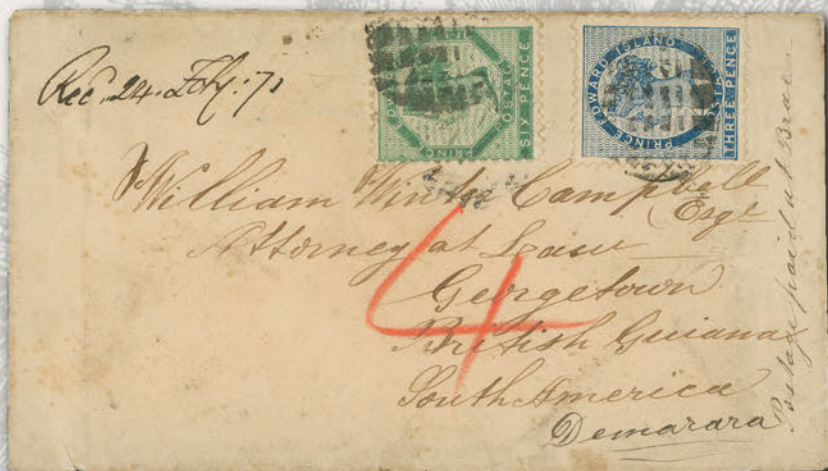 Rec. 24. Feby. 71
POSTAGE
SIX PENCE
PRINC
PRINCE EDWARD ISLAND
POSTA
THREE PENCE
William Winter Campbell
Esqr
Attorney at Law
Georgetown
British Guiana
South America
Demarara
4
Postage paid at Brae